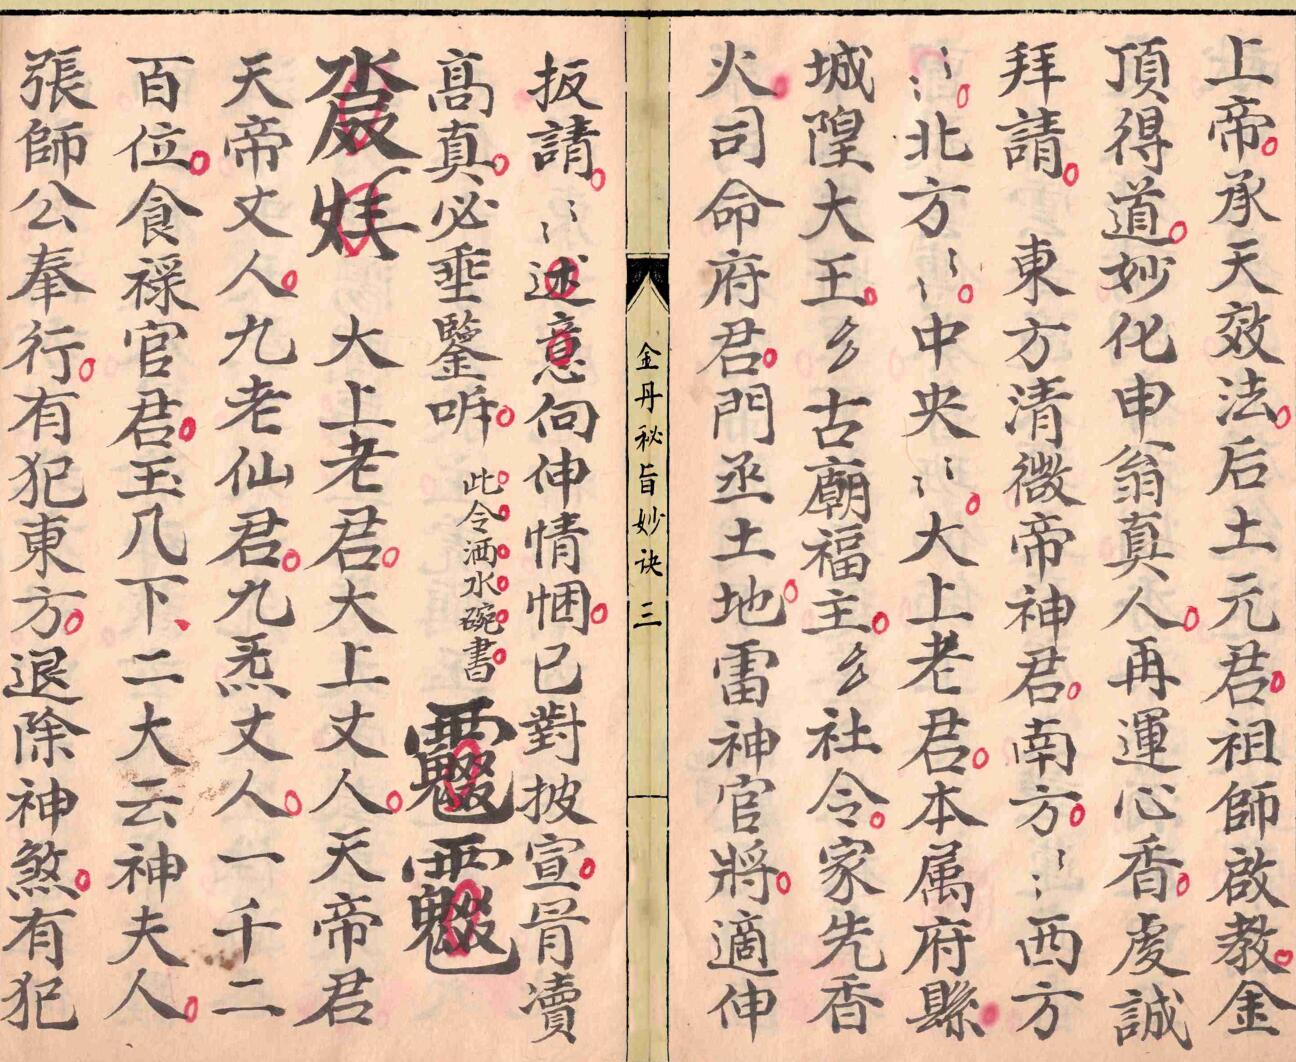 上帝承天效法后土元君祖師啟教金
頂得道妙化申翁真人再運心香虔誠
拜請東方清微帝神君南方〻西方
〻北方〻中央〻大上老君本属府縣
城隍大王厶古廟福主厶社令家先香
火司命府君門丞土地雷神官將適伸
金丹秘旨妙诀 三
扳請〻述意向伸情悃已對披宣冐凟
高真必垂鑒听此令洒水碗書
大上老君大上丈人天帝君
天帝丈人九老仙君九炁丈人一千二
百位食禄官君玉几下二大云神夫人
張師公奉行有犯東方退除神煞有犯